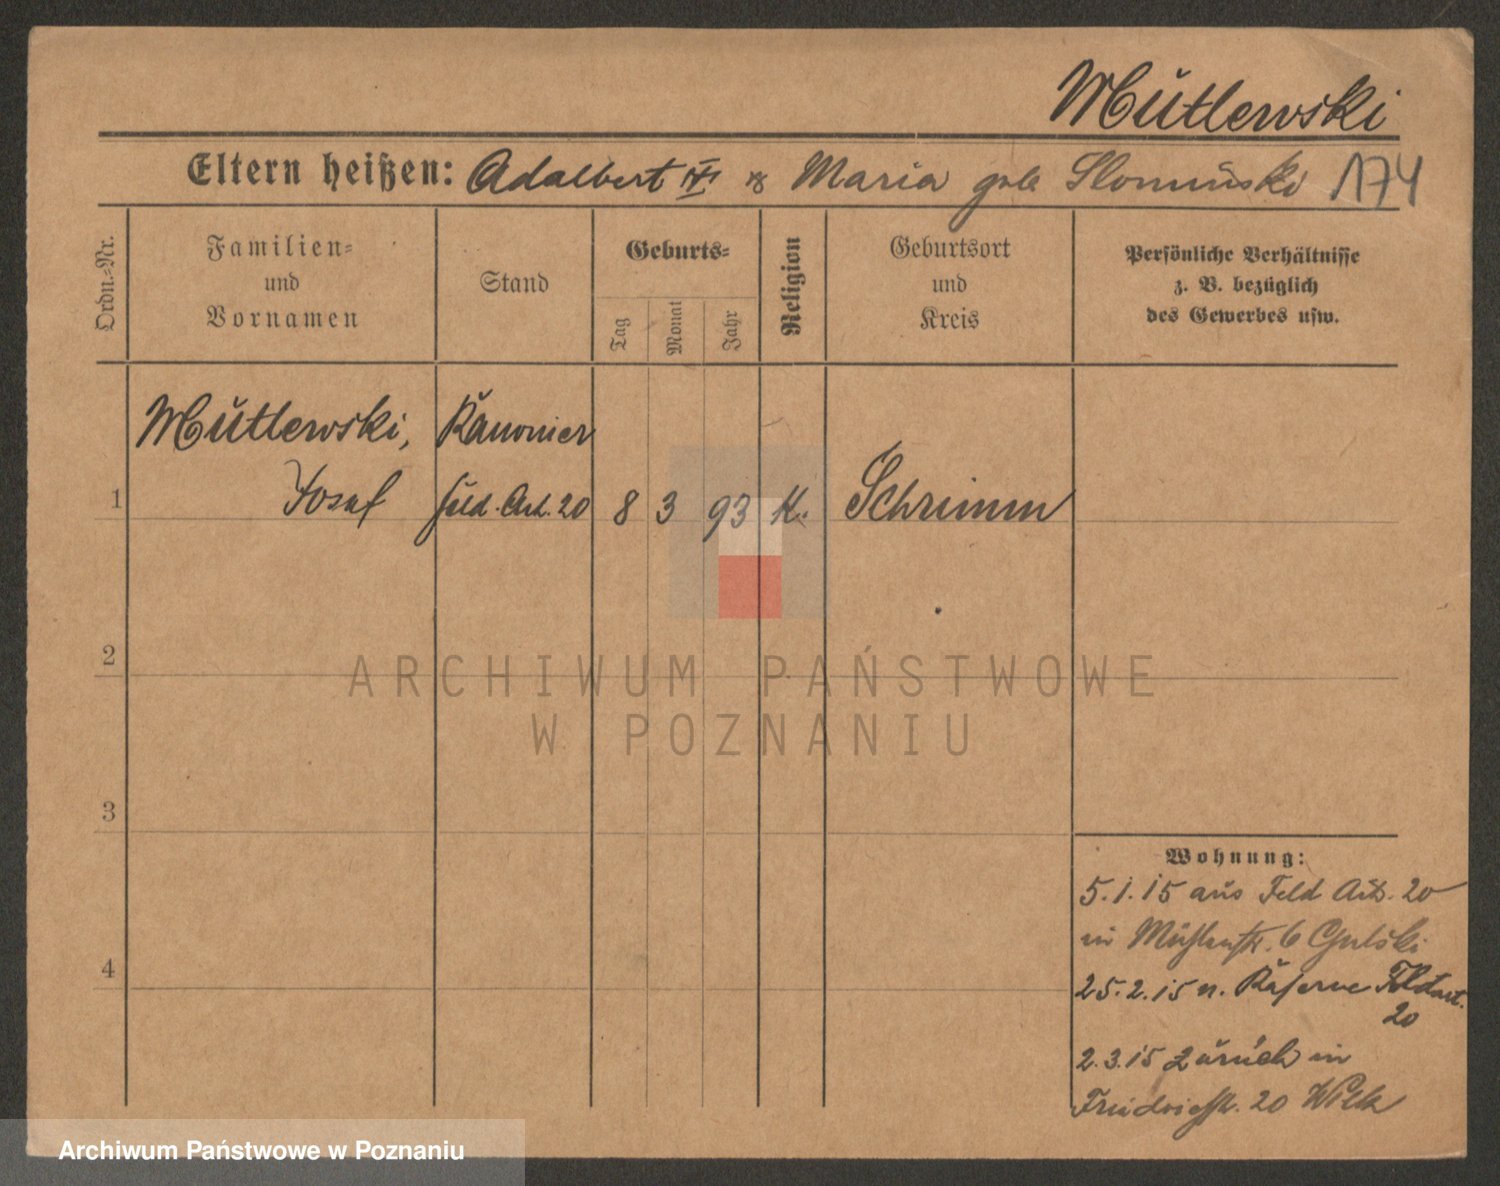 Mutlewski
Eltern heißen: Adalbert & Maria geb. Slominski 174
Ordn.-Nr.
Familien-
und
Vornamen
Stand
Geburts-
Tag
Monat
Jahr
Religion
Geburtsort
und
Kreis
Persönliche Verhältnisse
z. B. bezüglich
des Gewerbes usw.
Mutlewski, Kanonier
1 Josef Feld. Art. 20 8 3 93 K. Schrimm
2
ARCHIWUM PAŃSTWOWE
W POZNANIU
3
4
Wohnung:
5.1.15 aus Feld Art. 20
in Mühlenstr. 6 Gulski
25.2.15 n. Kaserne Feldart.
20
2.3.15 zurück in
Friedrichstr. 20 Wilk
Archiwum Państwowe w Poznaniu